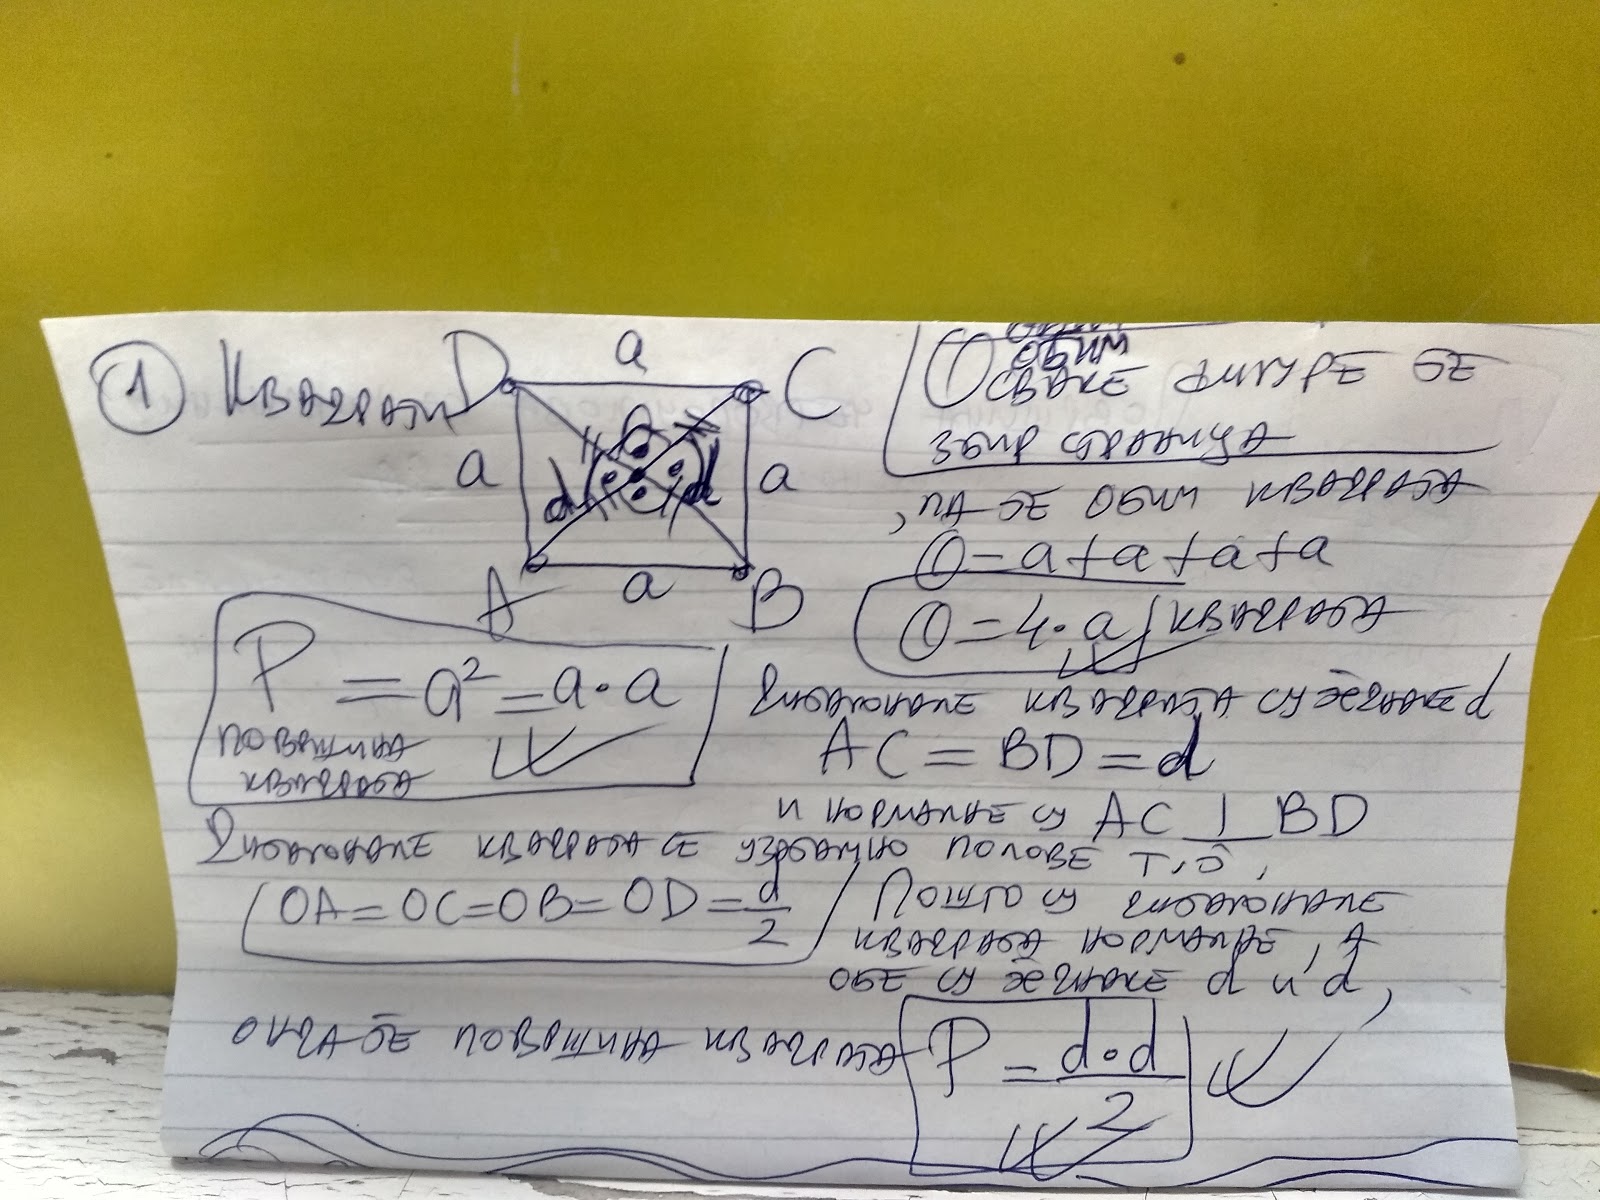 1 Квадрат
D a C
a d d a
A a B
O обим
сваке фигуре је
збир страница
, па је обим квадрата
O = a + a + a + a
O = 4 · a квадрата
P = a² = a · a
површина
квадрата
Дијагонале квадрата су једнаке d
AC = BD = d
и нормалне су AC ⊥ BD
Дијагонале квадрата се узајамно полове т, О,
OA = OC = OB = OD = d/2
Пошто су дијагонале
квадрата нормалне, а
обе су једнаке d и d,
онда је површина квадрата P = d · d / 2